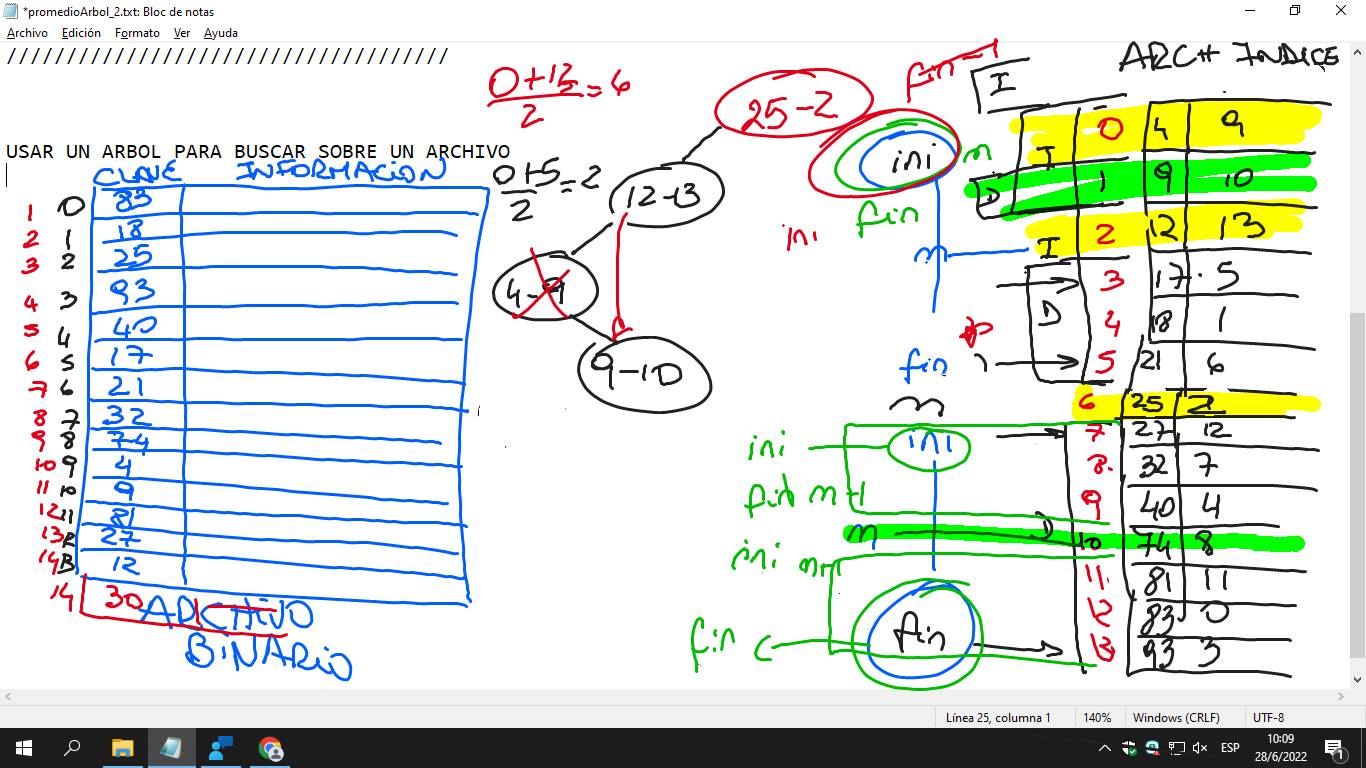 *promedioArbol_2.txt: Bloc de notas
Archivo Edición Formato Ver Ayuda
//////////////////////////////////////
USAR UN ARBOL PARA BUSCAR SOBRE UN ARCHIVO
CLAVE INFORMACION
1 0 83
2 1 18
3 2 25
4 3 93
5 4 40
6 5 17
7 6 21
8 7 32
9 8 74
10 9 4
11 10 9
12 11 81
13 12 27
14 13 12
14 30
ARCHIVO
BINARIO
0+13
2
=6
0+5
2
=2
25-2
12-13
4-9
9-10
fin-1
ini
m
fin
ini
m
fin
m
ini
ini
fin m-1
m
ini m+1
fin
fin
ARCH INDICE
I
I
D
I
D
D
0 4 9
1 9 10
2 12 13
3 17 5
4 18 1
5 21 6
6 25 2
7 27 12
8 32 7
9 40 4
10 74 8
11 81 11
12 83 0
13 93 3
Línea 25, columna 1 140% Windows (CRLF) UTF-8
ESP
10:09
28/6/2022
1